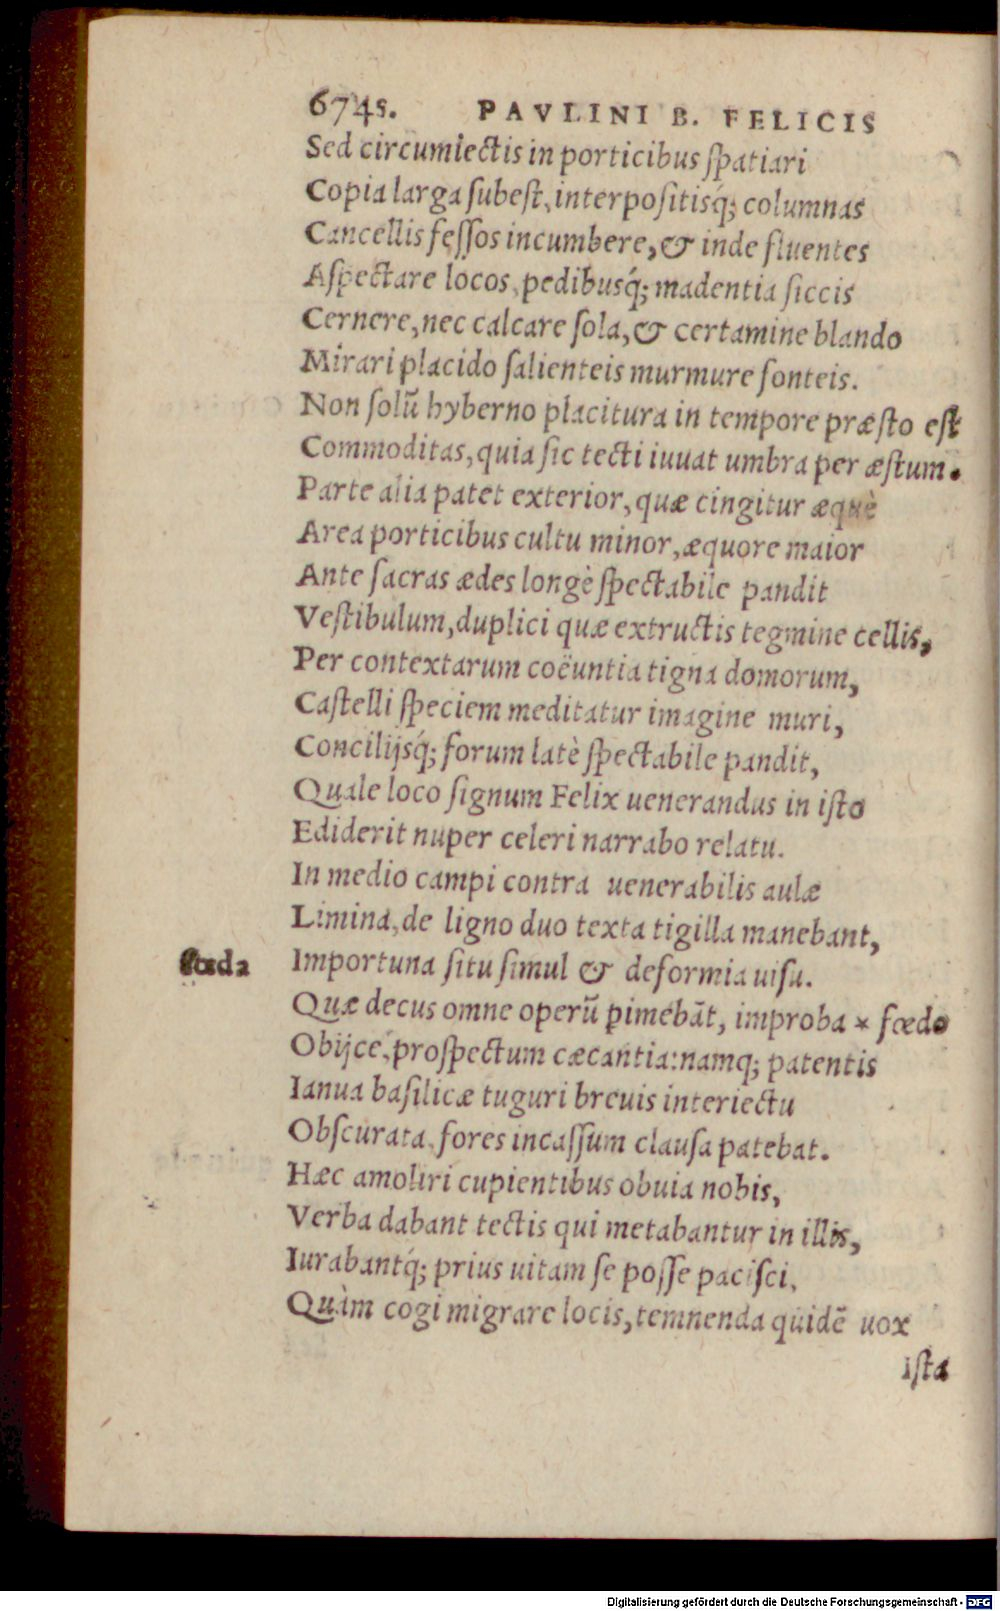 674s. PAVLINI B. FELICIS
Sed circumiectis in porticibus ſpatiari
Copia larga ſubeſt, interpoſitisq́; columnas
Cancellis feſſos incumbere, & inde fluentes
Aſpectare locos, pedibusq́; madentia ſiccis
Cernere, nec calcare ſola, & certamine blando
Mirari placido ſalienteis murmure fonteis.
Non ſolũ hyberno placitura in tempore præſto eſt
Commoditas, quia ſic tecti iuuat umbra per æſtum.
Parte alia patet exterior, quæ cingitur æquè
Area porticibus cultu minor, æquore maior
Ante ſacras ædes longè ſpectabile pandit
Veſtibulum, duplici quæ extructis tegmine cellis,
Per contextarum coëuntia tigna domorum,
Caſtelli ſpeciem meditatur imagine muri,
Concilijsq́; forum latè ſpectabile pandit,
Quale loco ſignum Felix uenerandus in iſto
Ediderit nuper celeri narrabo relatu.
In medio campi contra uenerabilis aulæ
Limina, de ligno duo texta tigilla manebant,
fœda Importuna ſitu ſimul & deformia uiſu.
Quæ decus omne operũ p̱imebãt, improba * fœdo
Obijce, proſpectum cæcantia: namq; patentis
Ianua baſilicæ tuguri breuis interiectu
Obſcurata, fores incaſſum clauſa patebat.
Hæc amoliri cupientibus obuia nobis,
Verba dabant tectis qui metabantur in illis,
Iurabantq́; prius uitam ſe poſſe paciſci,
Quàm cogi migrare locis, temnenda quidẽ uox
iſta
Digitalisierung gefördert durch die Deutsche Forschungsgemeinschaft - DFG